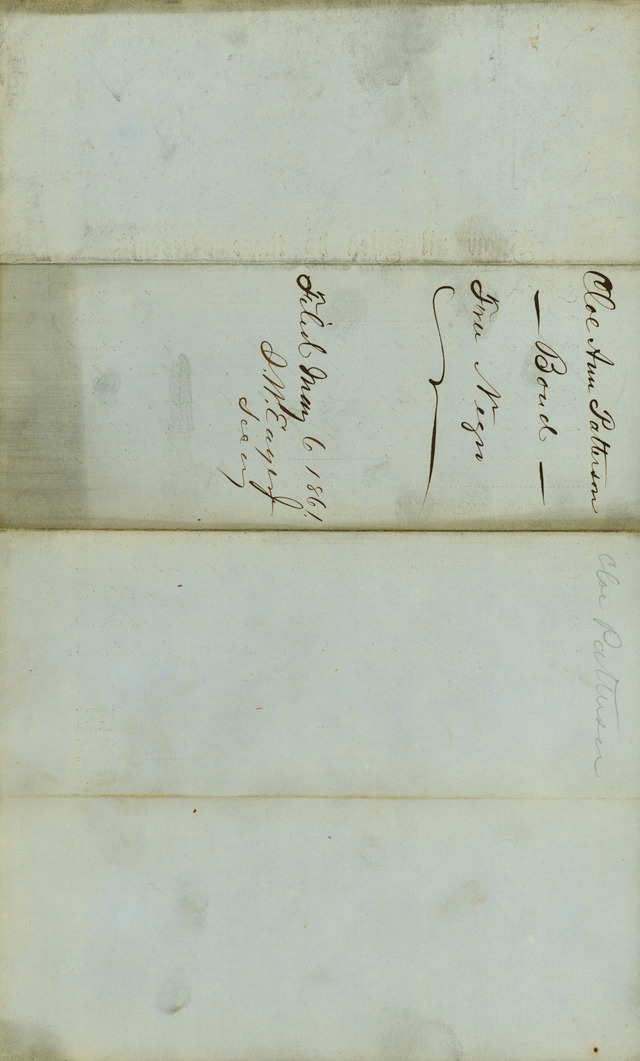 Cloe Ann Patterson
— Bond —
Free Negro
Filed May 6 1861.
Cloe Patterson